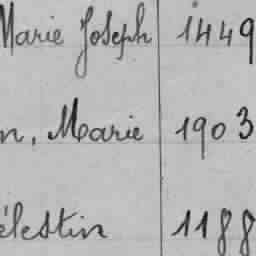 Marie Joseph 1449
n, Marie 1903
élestin 1188